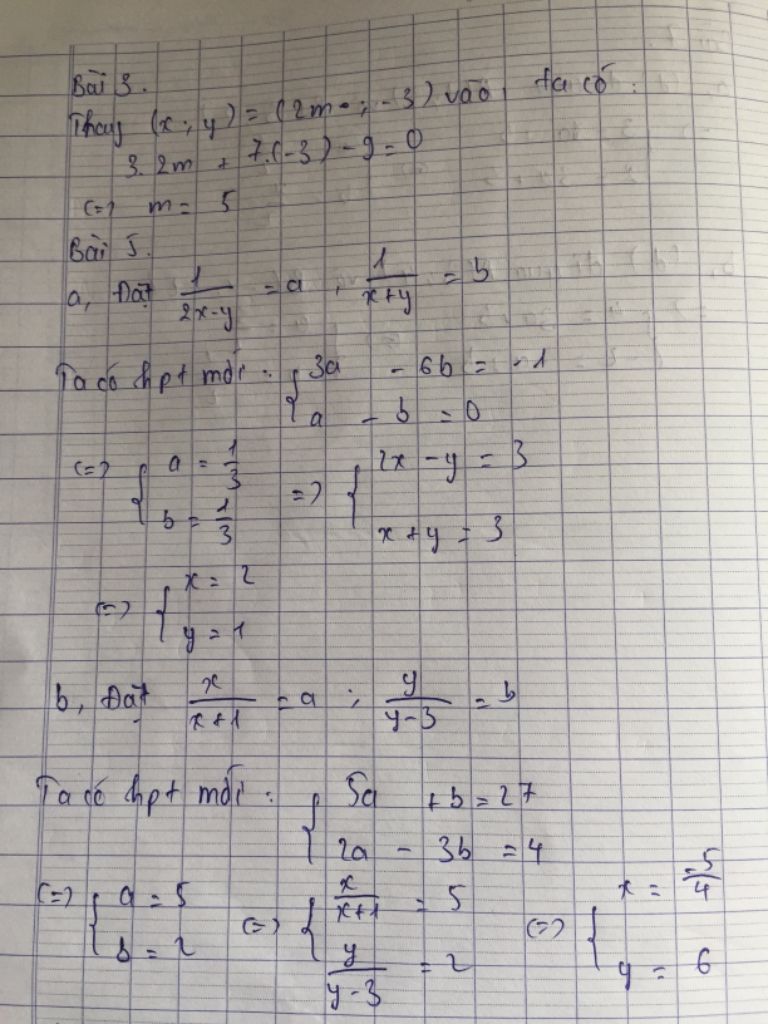 Bài 3.
Thay (x; y) = (2m ; -3) vào, ta có :
3. 2m + 7.(-3) - 9 = 0
<=> m = 5
Bài 5.
a, Đặt 1/(2x-y) = a ; 1/(x+y) = b
Ta có hpt mới : { 3a - 6b = -1
a - b = 0
<=> { a = 1/3 => { 2x - y = 3
b = 1/3 x + y = 3
<=> { x = 2
y = 1
b, Đặt x/(x+1) = a ; y/(y-3) = b
Ta có hpt mới : { 5a + b = 27
2a - 3b = 4
<=> { a = 5 <=> { x/(x+1) = 5 <=> { x = -5/4
b = 2 y/(y-3) = 2 y = 6